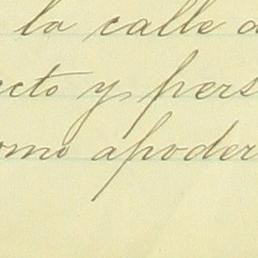 la calle d
ecto y pers
omo apoder